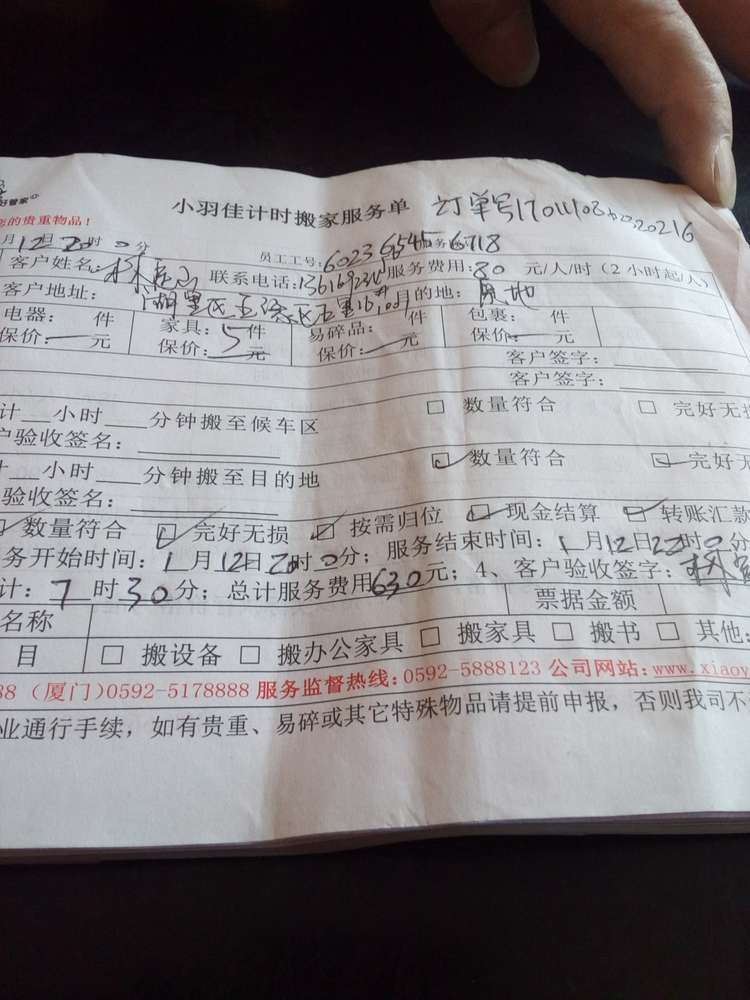 好管家
您的贵重物品!
小羽佳计时搬家服务单 订单号
月12日20时0分 员工工号:6023 6545 6718
客户姓名: 联系电话: 服务费用:80元/人/时(2小时起/人)
客户地址: 湖里区 的地:原地
电器: 件 家具:5件 易碎品: 件 包裹: 件
保价:—元 保价:—元 保价:—元 保价:—元
客户签字:
客户签字:
计__小时____分钟搬至候车区 □ 数量符合 □ 完好无损
户验收签名:
计__小时____分钟搬至目的地 ☑数量符合 ☑完好无
验收签名:
☑数量符合 ☑完好无损 ☑按需归位 ☑现金结算 ☑转账汇款
务开始时间:1月12日20时0分;服务结束时间:1月12日22时0分
计:7时30分;总计服务费用630元;4、客户验收签字:林
名称 票据金额
目 □ 搬设备 □ 搬办公家具 □ 搬家具 □ 搬书 □ 其他:
88 (厦门)0592-5178888 服务监督热线:0592-5888123 公司网站:www.xiaoy
业通行手续,如有贵重、易碎或其它特殊物品请提前申报,否则我司不